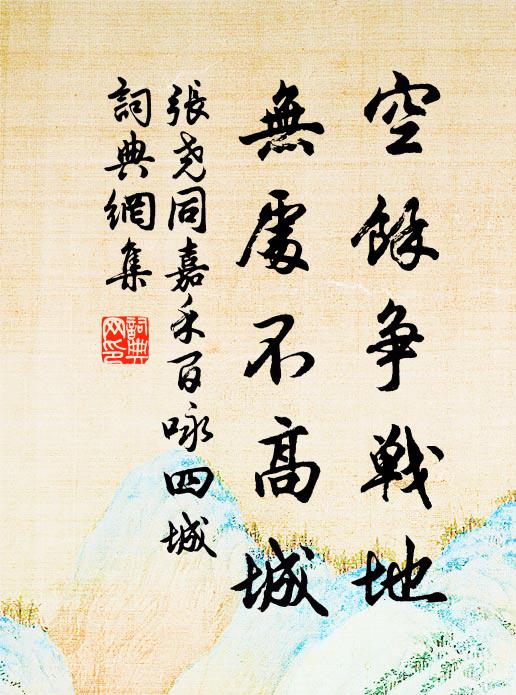 空餘争戰地
無處不高城
張尧同嘉禾百咏四城
詞典網集
詞典網印